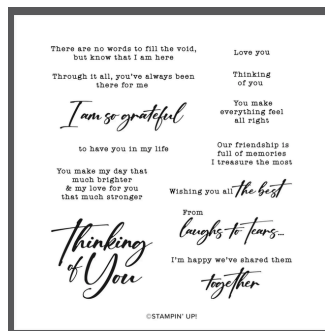 There are no words to fill the void,
but know that I am here
Through it all, you've always been
there for me
I am so grateful
to have you in my life
You make my day that
much brighter
& my love for you
that much stronger
Thinking
of You
Love you
Thinking
of you
You make
everything feel
all right
Our friendship is
full of memories
I treasure the most
Wishing you all the best
From
laughs to tears...
I'm happy we've shared them
together
©STAMPIN' UP!